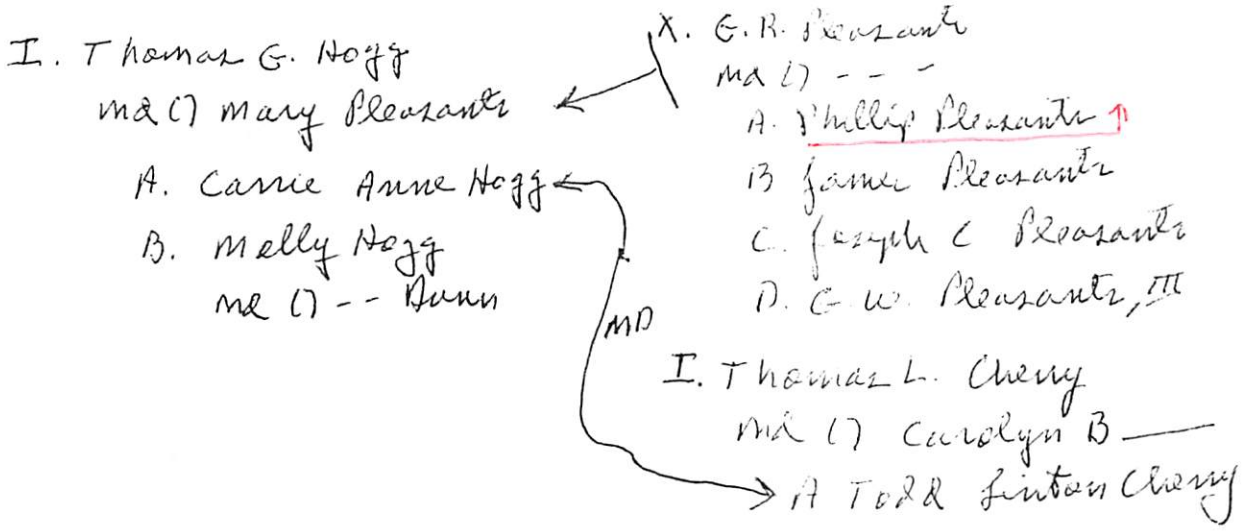 I. Thomas G. Hogg
md () Mary Pleasants
A. Carrie Anne Hogg
B. Melly Hogg
md () -- Dunn
MD
X. G.R. Pleasants
md () - - -
A. Phillip Pleasants
B James Pleasants
C. Joseph C Pleasants
D. G.W. Pleasants, III
I. Thomas L. Cherry
md () Carolyn B ——
A Todd Linton Cherry